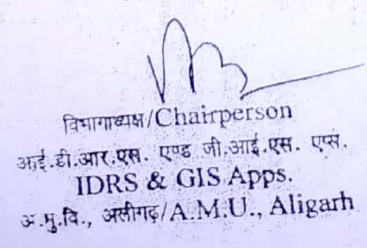 विभागाध्यक्ष/Chairperson
आई.डी.आर.एस. एण्ड जी.आई.एस. एप्स.
IDRS & GIS Apps.
अ.मु.वि., अलीगढ़/A.M.U., Aligarh